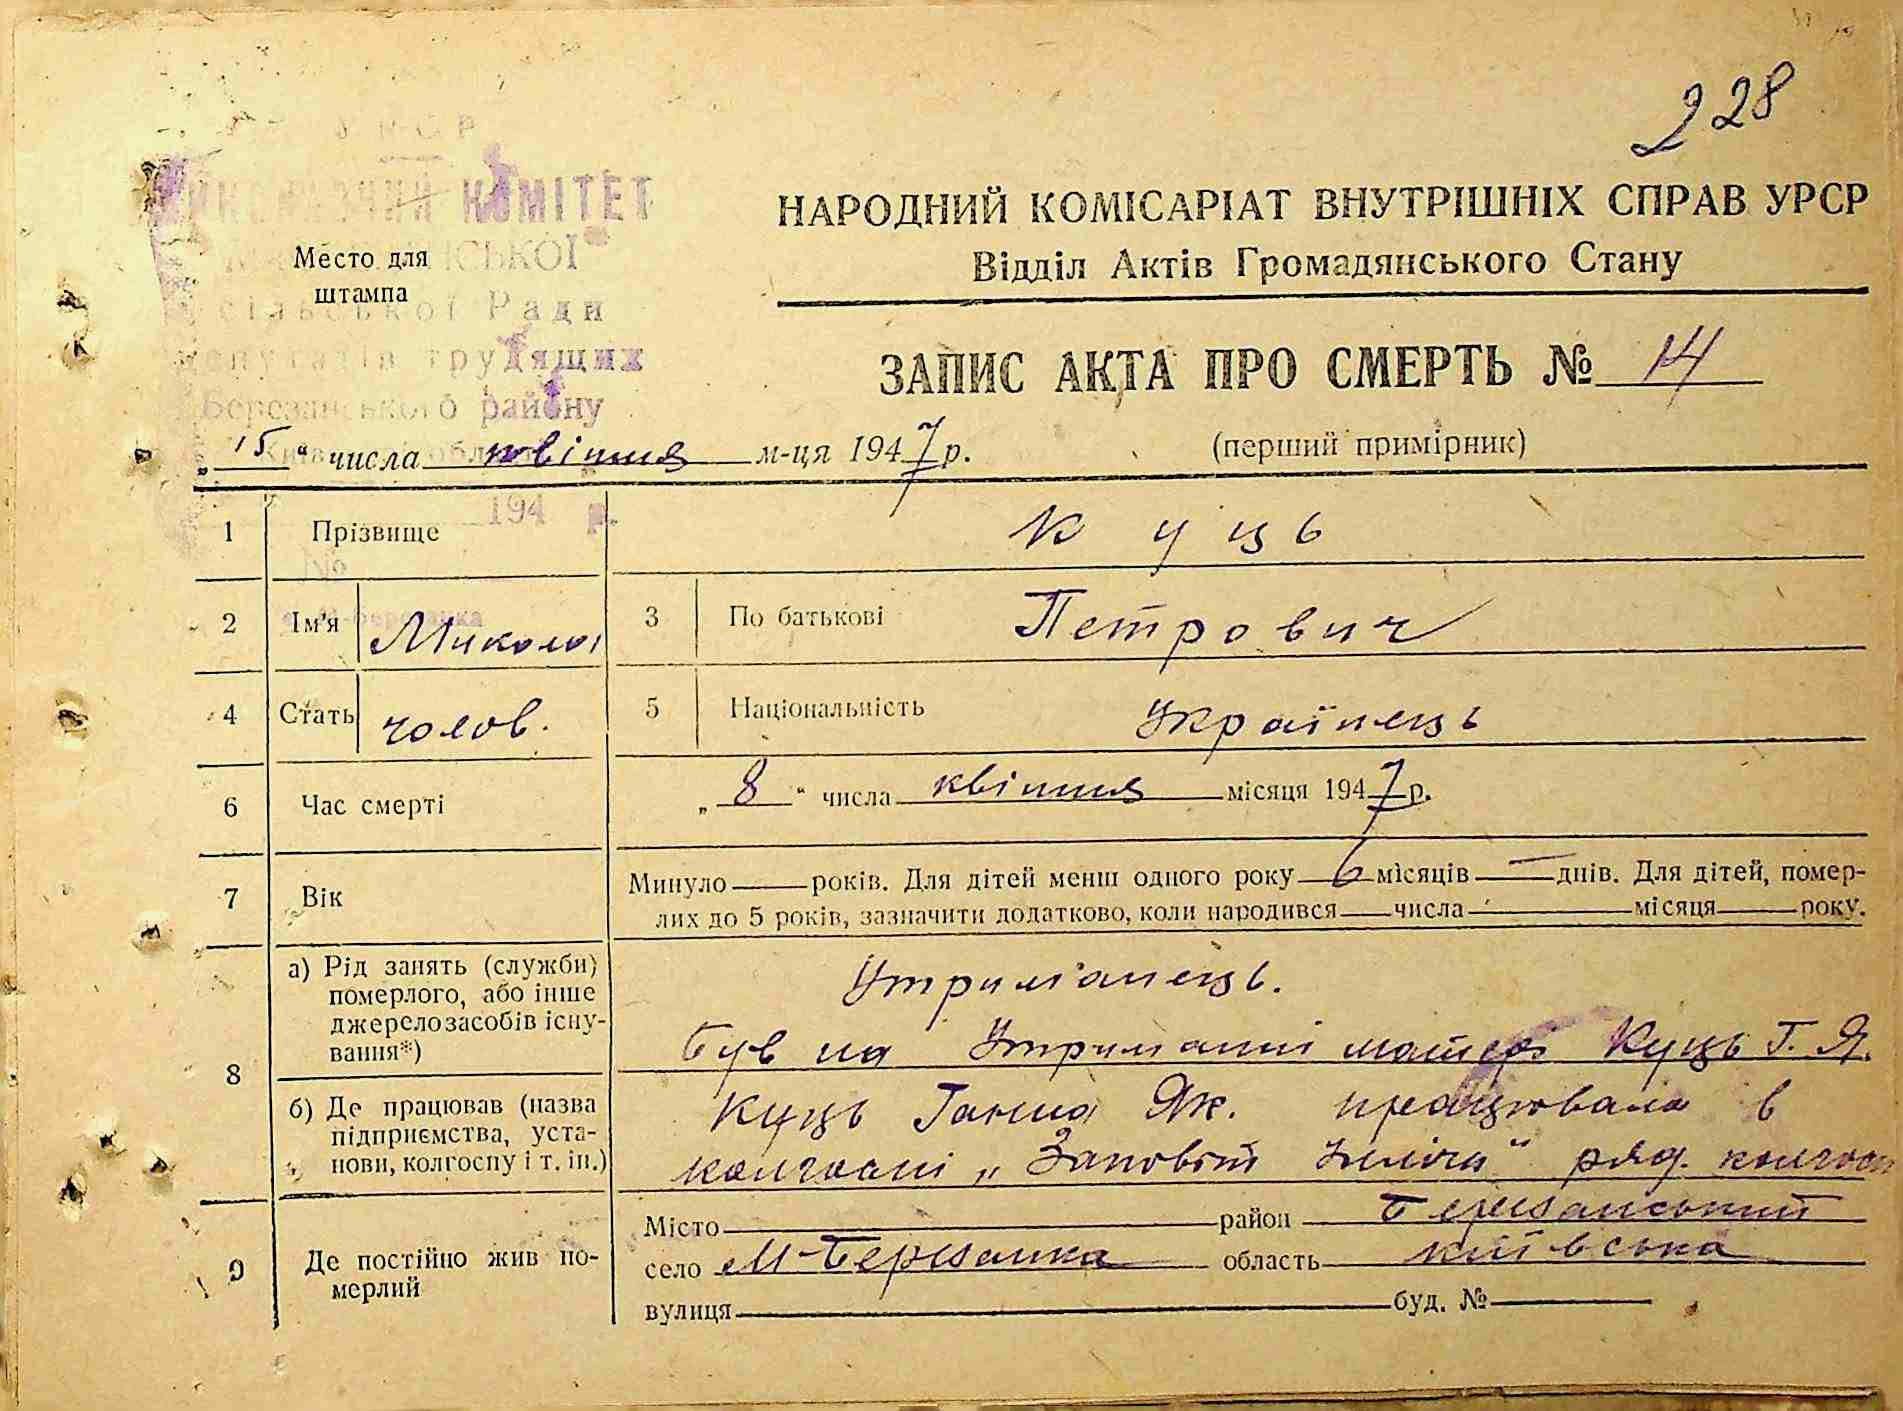 228
УРСР
ВИКОНАВЧИЙ КОМІТЕТ
НАРОДНИЙ КОМІСАРІАТ ВНУТРІШНІХ СПРАВ УРСР
Відділ Актів Громадянського Стану
Место для
штампа
сільської Ради
депутатів трудящих
Березанського району
ЗАПИС АКТА ПРО СМЕРТЬ № 14
„15“ числа квітня м-ця 1947 р.
(перший примірник)
194 р.
№
1 Прізвище Куць
2 Ім'я Микола 3 По батькові Петрович
4 Стать чолов. 5 Національність Українець
6 Час смерті „8“ числа квітня місяця 1947 р.
7 Вік Минуло — років. Для дітей менш одного року 6 місяців — днів. Для дітей, помер-
лих до 5 років, зазначити додатково, коли народився числа місяця року.
8 а) Рід занять (служби) померлого, або інше джерело засобів існу-вання*)
Утриманець.
Був на Утриманні матері Куць Г. Я.
б) Де працював (назва підприємства, уста-нови, колгоспу і т. ін.)
Куць Ганна Як. працювала в
колгоспі „Заповіт Ілліча" ряд. колгосп
9 Де постійно жив по-мерлий
Місто район Березанський
село М-Березанка область київська
вулиця буд. №